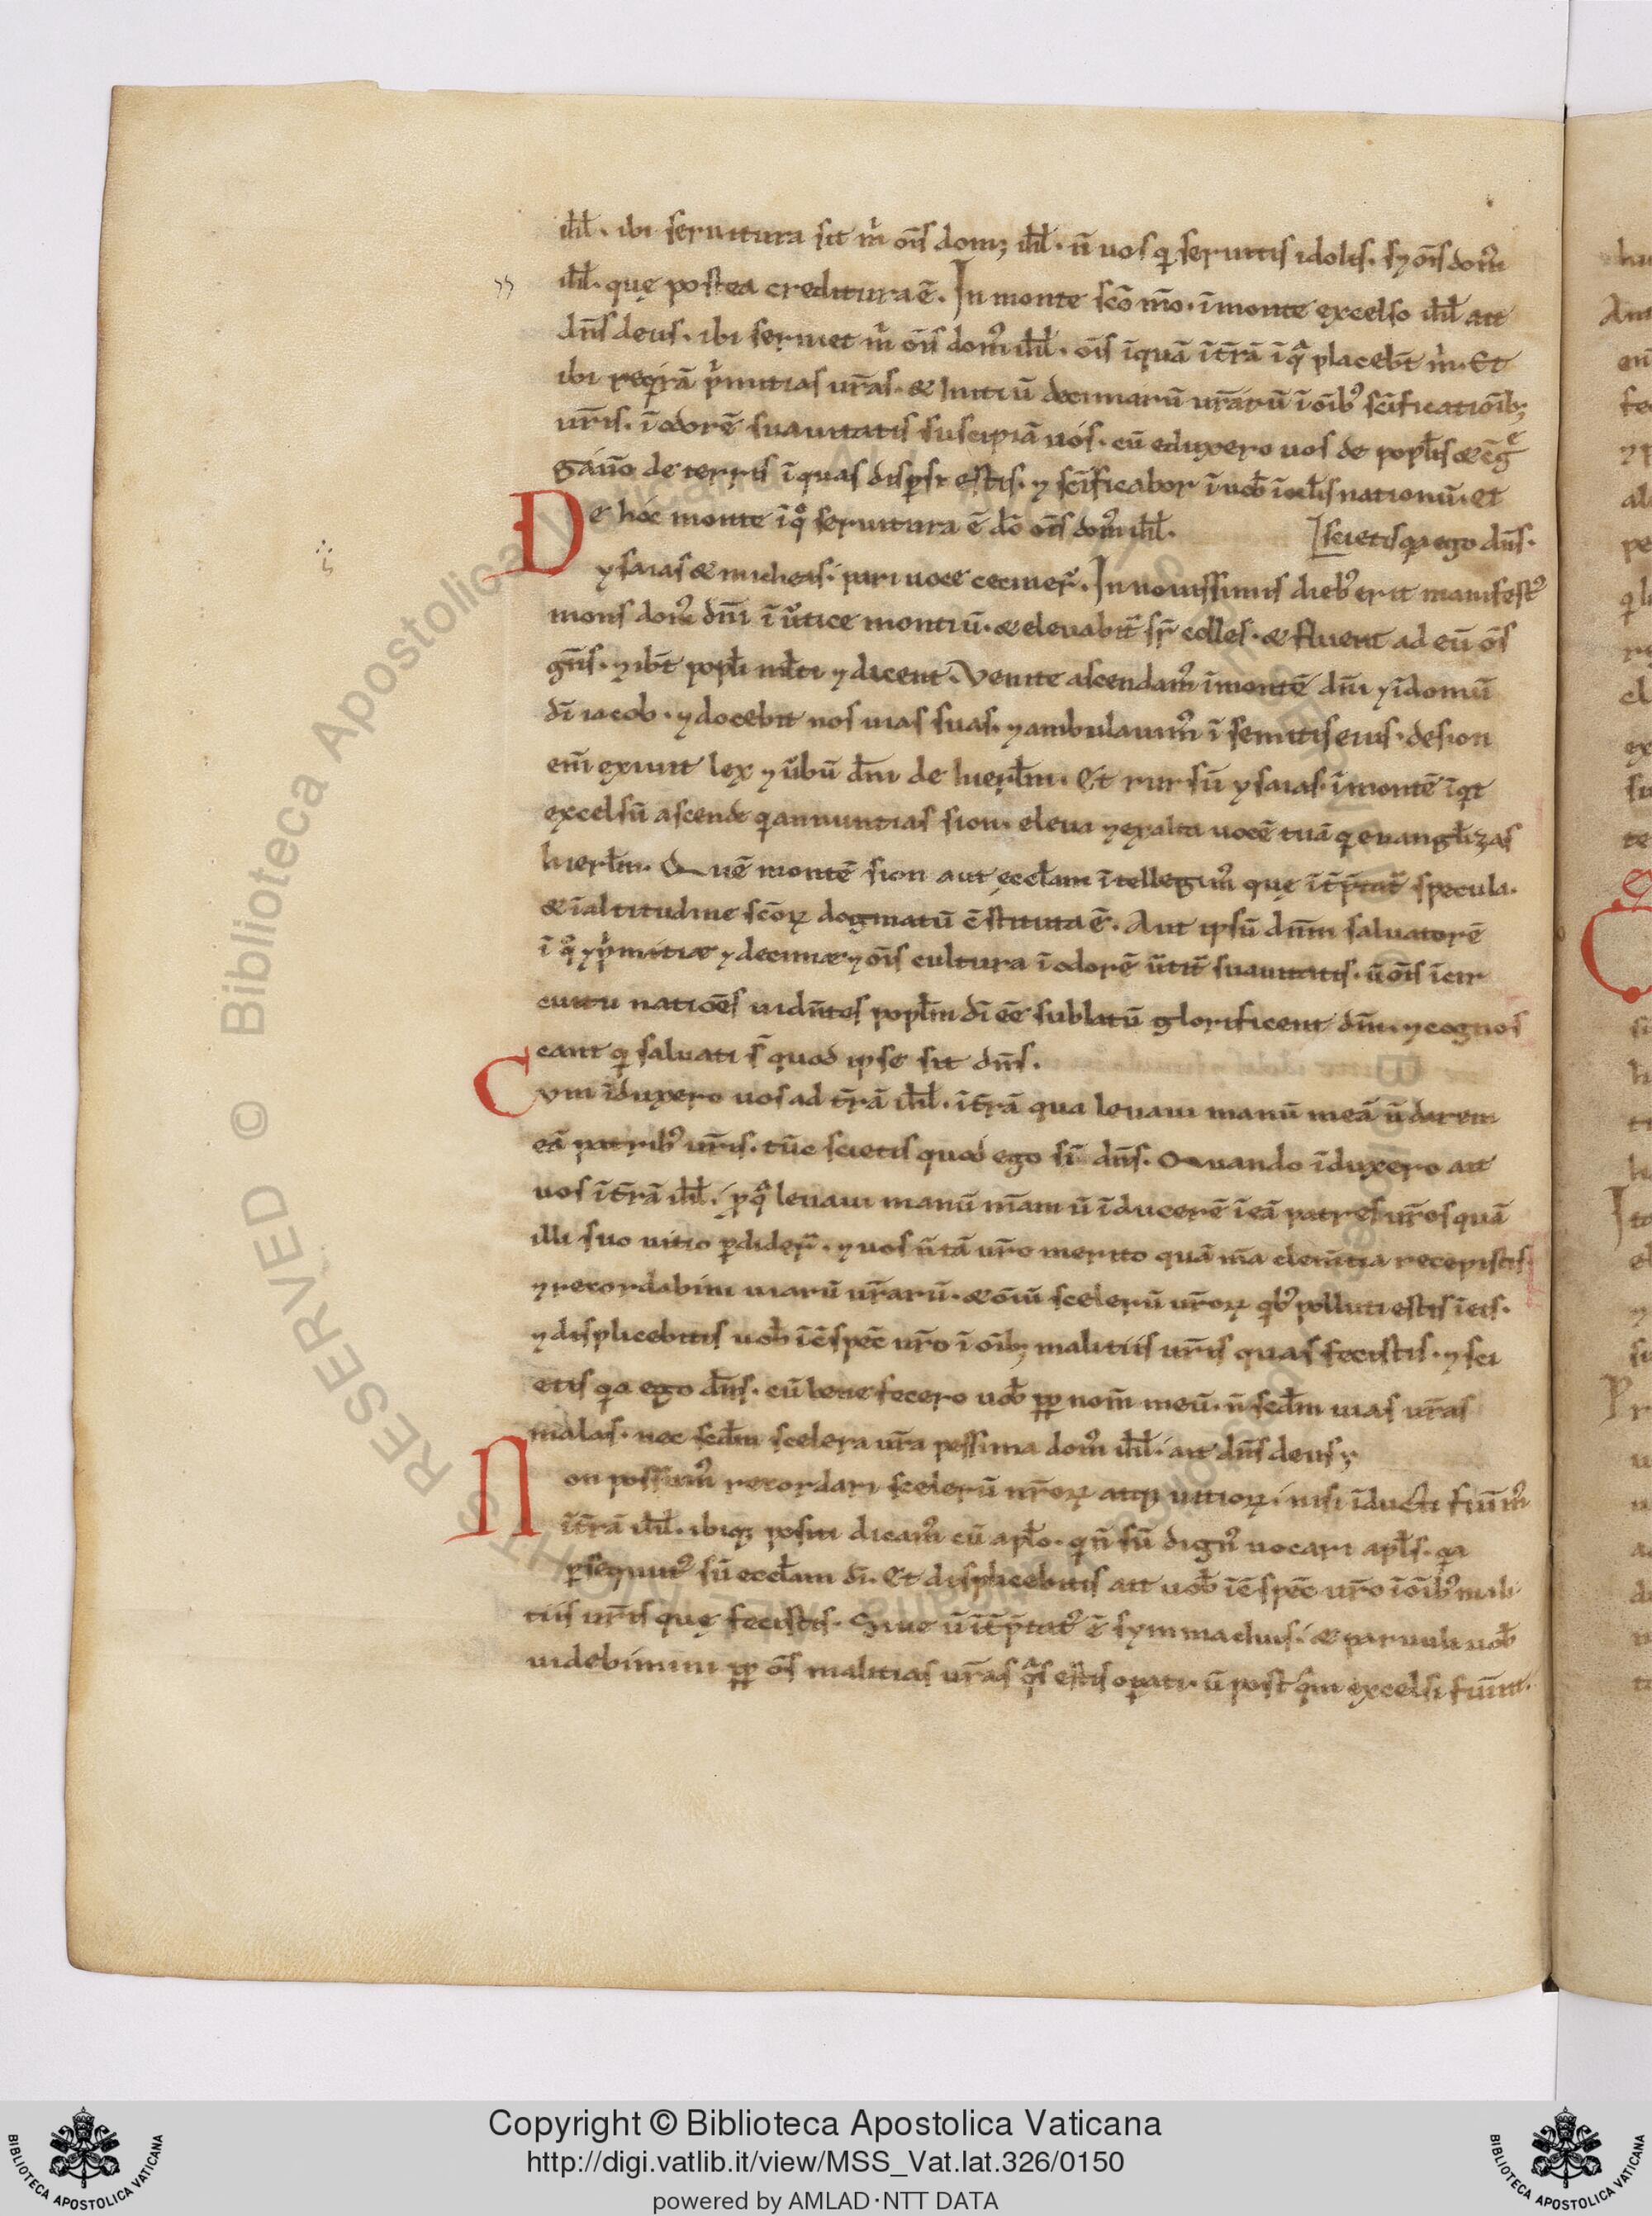 ihł. ibi seruitura sit m̄ om̄s domꝫ ihł. n̄ uos q̇ seruitis idolis. sꝫ om̄s dom̄
ihł. quę postea creditura ē. In monte scō mō. ī monte excelso ihł ait
dn̄s deus. ibi seruiet m̄ om̄s dom̄ ihł. om̄s īquā ī tr̄ā ī q̄ placebt̄ m̄. Et
ibi reqrā p̄mitias ur̄as. & initiū decimarū ur̄arū ī oībꝰ scīficatioībꝫ
ur̄is. ī odorē suauitatis suscipiā uos. cū eduxero uos de popłis & cg̃
gauō de terris ī quas dispersi estis. ⁊ scīficabor ī uob̄ ī ocłis nationū. et
De hoc monte ī qͦ seruitura ē dō om̄s dom̄ ihł. [scietis qa ego dn̄s.
ysaias & micheas. pari uoce ceciner̄. In nouissimis diebꝰ erit manifestꝰ
mons domꝰ dn̄i ī ūtice montiū. & eleuabit̄ sr̄ colles. & fluent ad eū om̄s
gn̄s. ⁊ ibt̄ popłi młti ⁊ dicent. Venite ascendam̄ ī montē dn̄i ⁊ ī domū
dī iacob. ⁊ docebit nos uias suas. ⁊ ambulauim̄ ī semitis eius. de sion
enī exiuit lex ⁊ ūbū dn̄i de hierłm. Et rursū ysaias. ī montē īqt
excelsū ascende q̇ annuntias sion. eleua ⁊ exalta uocē tuā q̇ euangłizas
hierłm. Quē montē sion aut ęccłam ītellegim̄ quę īt̄p̄tat̄ specula.
& ī altitudine scōꝝ dogmatū c̄stituta ē. Aut ipsū dn̄m saluatorē
ī qͦ ⁊ p̄mitiæ ⁊ decimæ ⁊ om̄s cultura ī odorē ūtit̄ suauitatis. ū om̄s ī cir
cuitu natiōes uidn̄tes popłm dī eē sublatū glorificent dn̄m. ⁊ cognos
cant q̇ saluati s̄ quod ipse sit dn̄s.
Cum īduxero uos ad tr̄ā ihł. ī tr̄ā qua leuaui manū meā ū darem
eā patribꝰ ur̄is. tūc scietis quod ego sī dn̄s. Quando īduxero ait
uos ī tr̄ā ihł. p̱ q̄ leuaui manū m̄am ū īducerē ī eā patres ur̄os quā
illi suo uitio p̱dider̄. ⁊ uos n̄ tā ur̄o merito quā m̄a clem̄tia recepistis
⁊ recordabimi uiarū ur̄arū. & om̄iū scelerū ur̄oꝝ qbꝰ polluti estis ī eis.
⁊ displicebitis uob̄ ī c̄spec̄ ur̄o ī oībꝫ malitiis ur̄is quas fecistis. ⁊ sci
etis qa ego dn̄s. cū bene fecero uob̄ pp̱ nom̄ meū. n̄ scd̄m uias ur̄as
malas. nec scd̄m scelera ur̄a pessima dom̄ ihł. ait dn̄s deus;
Non possum̄ recordari scelerū nr̄oꝝ atqꝫ uitioꝝ. nisi īducti fuīm̄
ī tr̄ā ihł. ibiqꝫ positi dicam̄ cū apło. q̇ n̄ sū dignꝰ uocari apłs. qa
p̱secutꝰ sū eccłam dī. Et displicebitis ait uob̄ ī c̄spec̄ ur̄o ī oībꝰ mali
tiis ur̄is quę fecistis. Siue ū īt̄p̄tatꝰ ē symmachus. & paruuli uob̄
uidebimini pp̱ om̄s malitias ur̄as q̄s estis op̱ati. ū post qm̄ excelsi fuīnt.